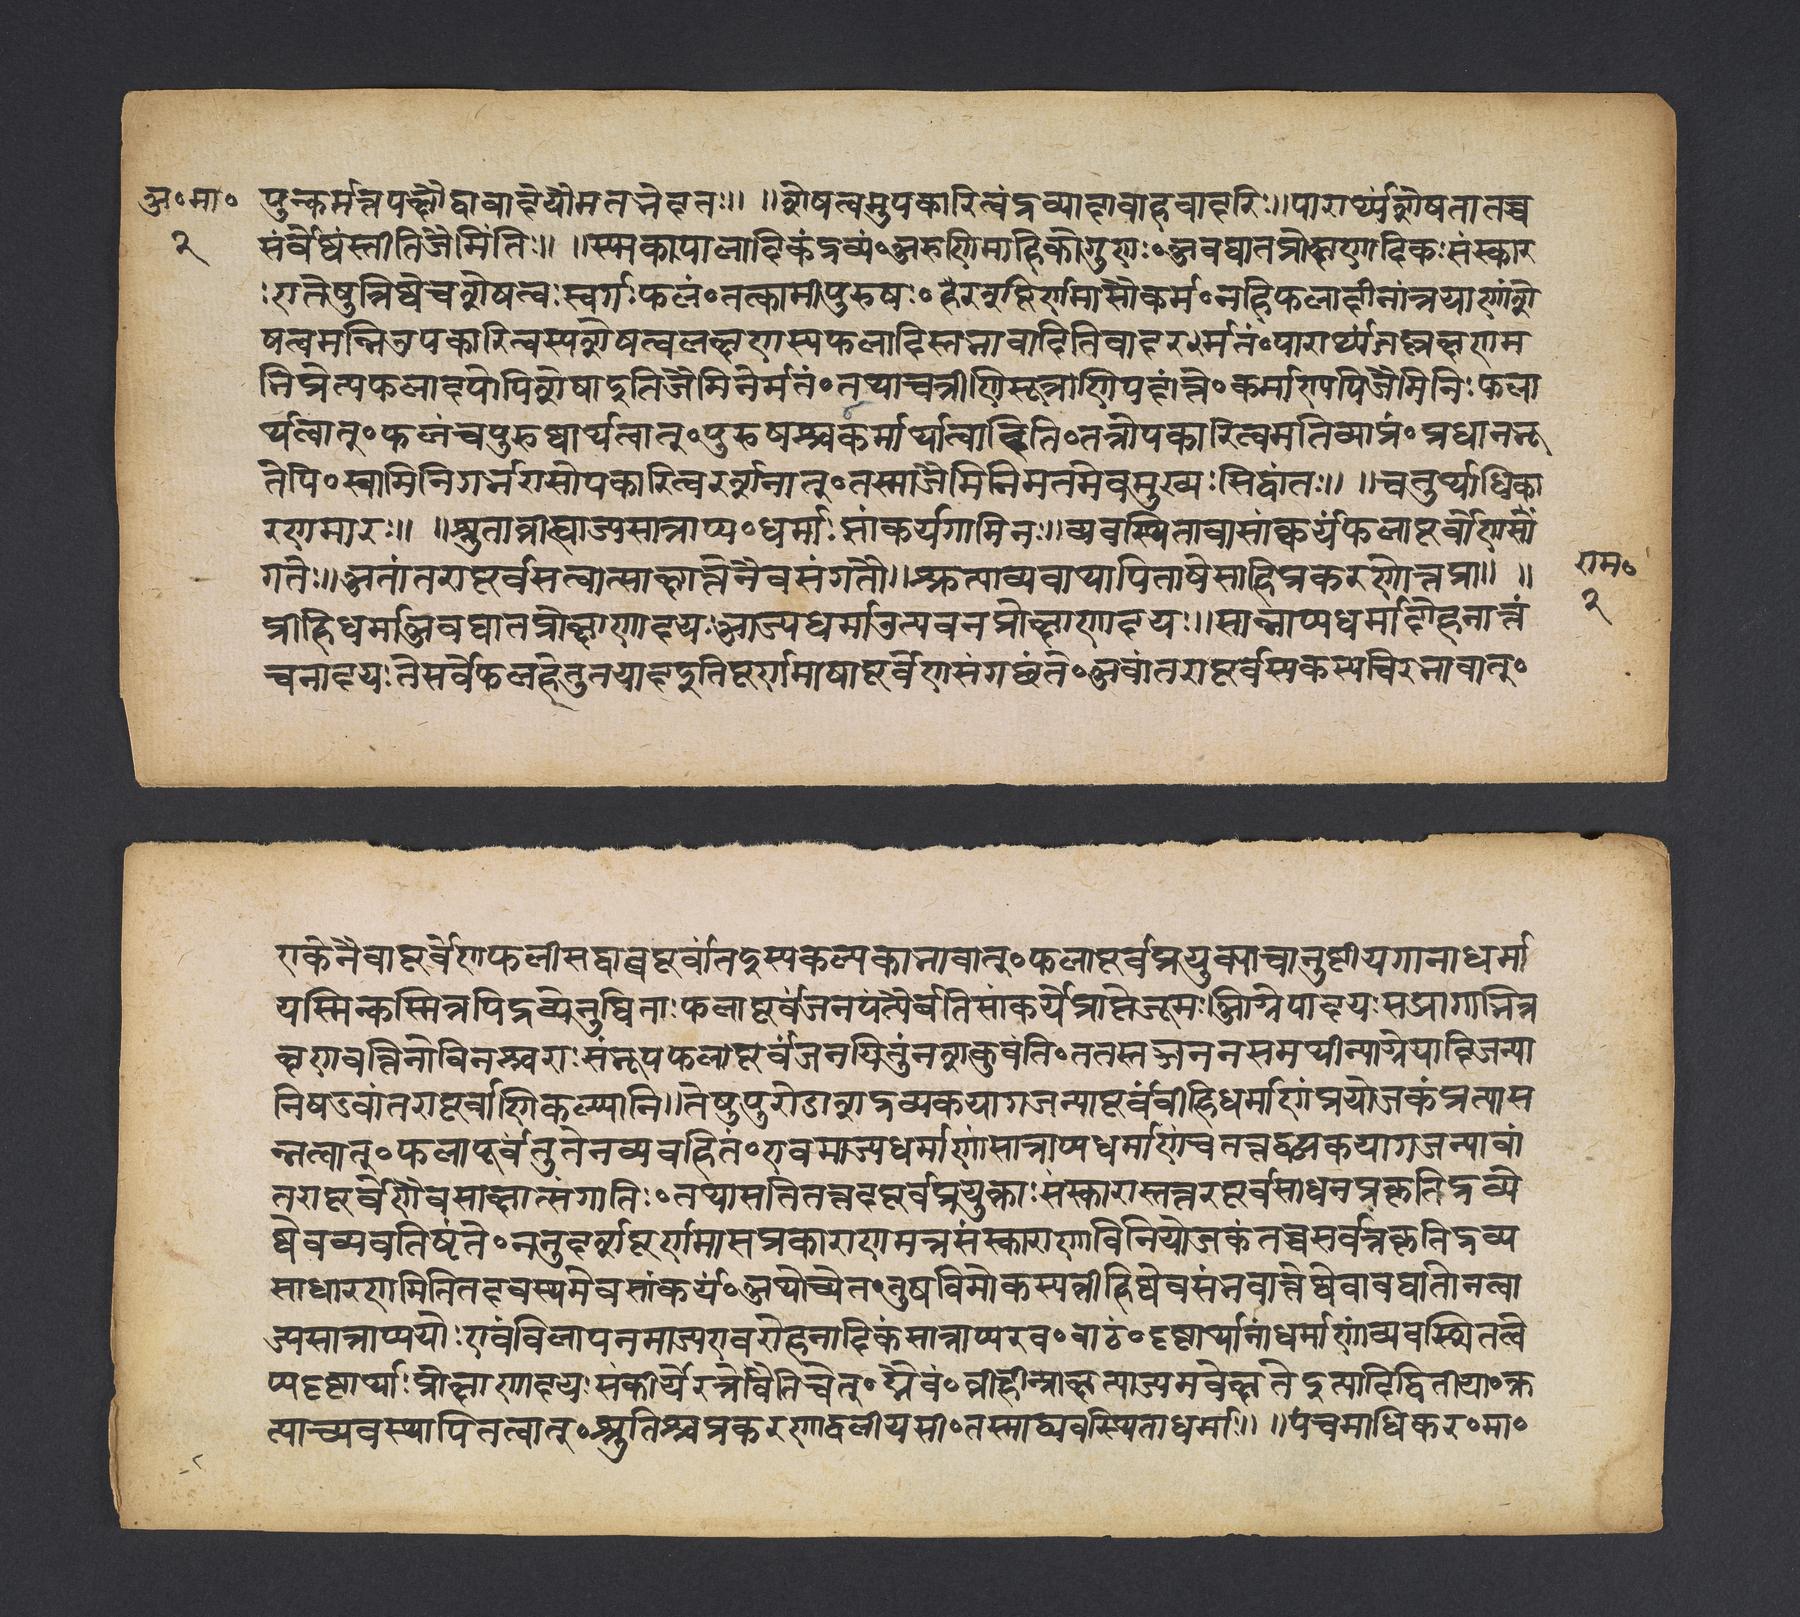 अ॰मा॰ पुन्कर्मत्रपक्षौद्वावाद्येयौमतभेदतः॥ ॥शेषत्वमुपकारित्वंद्रव्यादावाहबादरिः॥पारार्थ्यंशेषतातच्च
२ सर्वेष्वस्तीतिजैमिनिः॥ ॥स्पमकापालादिकंद्रव्यं॰अरुणिमादिकोगुणः॰अवघातप्रोक्षणादिकःसंस्कार
ःएतेषुत्रिष्वेवशेषत्वःस्वर्गःफलं॰तत्कामीपुरुषः॰कर्म॰नहिफलादीनांत्रयाणांशे
षत्वमस्तिउपकारित्वस्यशेषत्वलक्षणस्यफलादिस्वभावादितिबादरेर्मतं॰पारार्थ्यंतल्लक्षणम
भिप्रेत्यफलादयोपिशेषाइतिजैमिनेर्मतं॰तथाचत्रीणिसूत्राणिपठांते॰कर्माण्यपिजैमिनिःफला
र्थत्वात्॰फलंचपुरुषार्थत्वात्॰पुरुषश्चकर्मार्थात्वादिति॰तत्रोपकारित्वमतिव्याप्तं॰प्रधानभू
तेपि॰स्वामिनिगर्भदासोपकारित्वदर्शनात्॰तस्माज्जैमिनिमतमेवमुख्यःसिद्धांतः॥ ॥चतुर्थाधिका
रणमारः॥ ॥श्रुताव्रीह्याज्यसान्नाय्य॰धर्माःसांकर्यगामिनः॥व्यवस्थितावासांकर्यंफलापूर्वेणसं
गतेः॥अवांतरापूर्वसत्वात्साक्षात्तेनैवसंगतौ॥श्रुत्याव्यवस्थापिताषेसाहिप्रकरणोत्तमा॥ ॥
राम॰
२
व्रीहिधर्माअवघातप्रोक्षणादयःआज्यधर्माउत्पवनप्रोक्षणादयः॥सान्नाय्यधर्मादोहनातं
चनादयःतेसर्वेफलहेतुतयादइतिपूर्णमाषापूर्वेणसंगछंते॰अवांतरापूर्वस्यकस्यचिदभावात्॰
एकेनैवापूर्वेणफलसिद्धावपूर्वांतरस्यकल्पकाभावात्॰फलापूर्वप्रयुक्त्याचानुष्टीयमानाधर्मा
यस्मिन्कस्मिन्नपिद्रव्येनुष्ठिताःफलापूर्वंजनयंत्येवेतिसांकर्येप्राप्तेब्रूमःआग्नेयादयःसप्रागाभिन्न
क्षणवर्त्तिनोविनश्वराःसंभूयफलापूर्वंजनयितुंनशक्नुवंति॰ततस्तज्जननसमर्थान्याग्नेयादिजन्या
निषडवांतरापूर्वाणिकल्प्यानि॥तेषुपुरोडाशद्रव्यकयागजन्यापूर्वंव्रीहिधर्माणांप्रयोजकंप्रत्यास
न्नत्वात्॰फलापूर्वंतुतेनव्यवहितं॰एवमाज्यधर्माणांसान्नाय्यधर्माणांचतत्तद्रव्यकयागजन्यावां
तरापूर्वेणैवसाक्षात्संगतिः॰तथासतितत्तदपूर्वप्रयुक्ताःसंस्कारास्तत्तदपूर्वसाधनप्रकृतिद्रव्ये
ष्वेवव्यवतिष्ठंते॰ननुदर्शपूर्णमासप्रकाराणमत्रसंस्काराणांविनियोजकंतच्चसर्वप्रकृतिद्रव्य
साधारणमितितदवस्थमेवसांकर्यं॰अथोच्येत॰तुषविमोकस्यव्रीहिष्वेवसंभवात्तेष्वेवावघातोनत्वा
ज्यसान्नाय्ययोःएवंविलापनमाज्यएवदोहनादिकंसान्नाय्यएव॰बाढं॰दृष्टार्थानांधर्माणांव्यवस्थितत्वे
प्यदृष्टार्थाःप्रोक्षणादयःसंकीर्येरन्नेवेतिचेत्॰मैवं॰व्रीहीन्प्रोक्षत्याज्यमवेक्षतेइत्यादिद्वितीया॰श्रु
त्याव्यवस्थापितत्वात्॰श्रुतिश्चप्रकरणाद्बलीयसी॰तस्माद्व्यवस्थिताधर्माः॥ ॥पंचमाधिकर॰मा॰